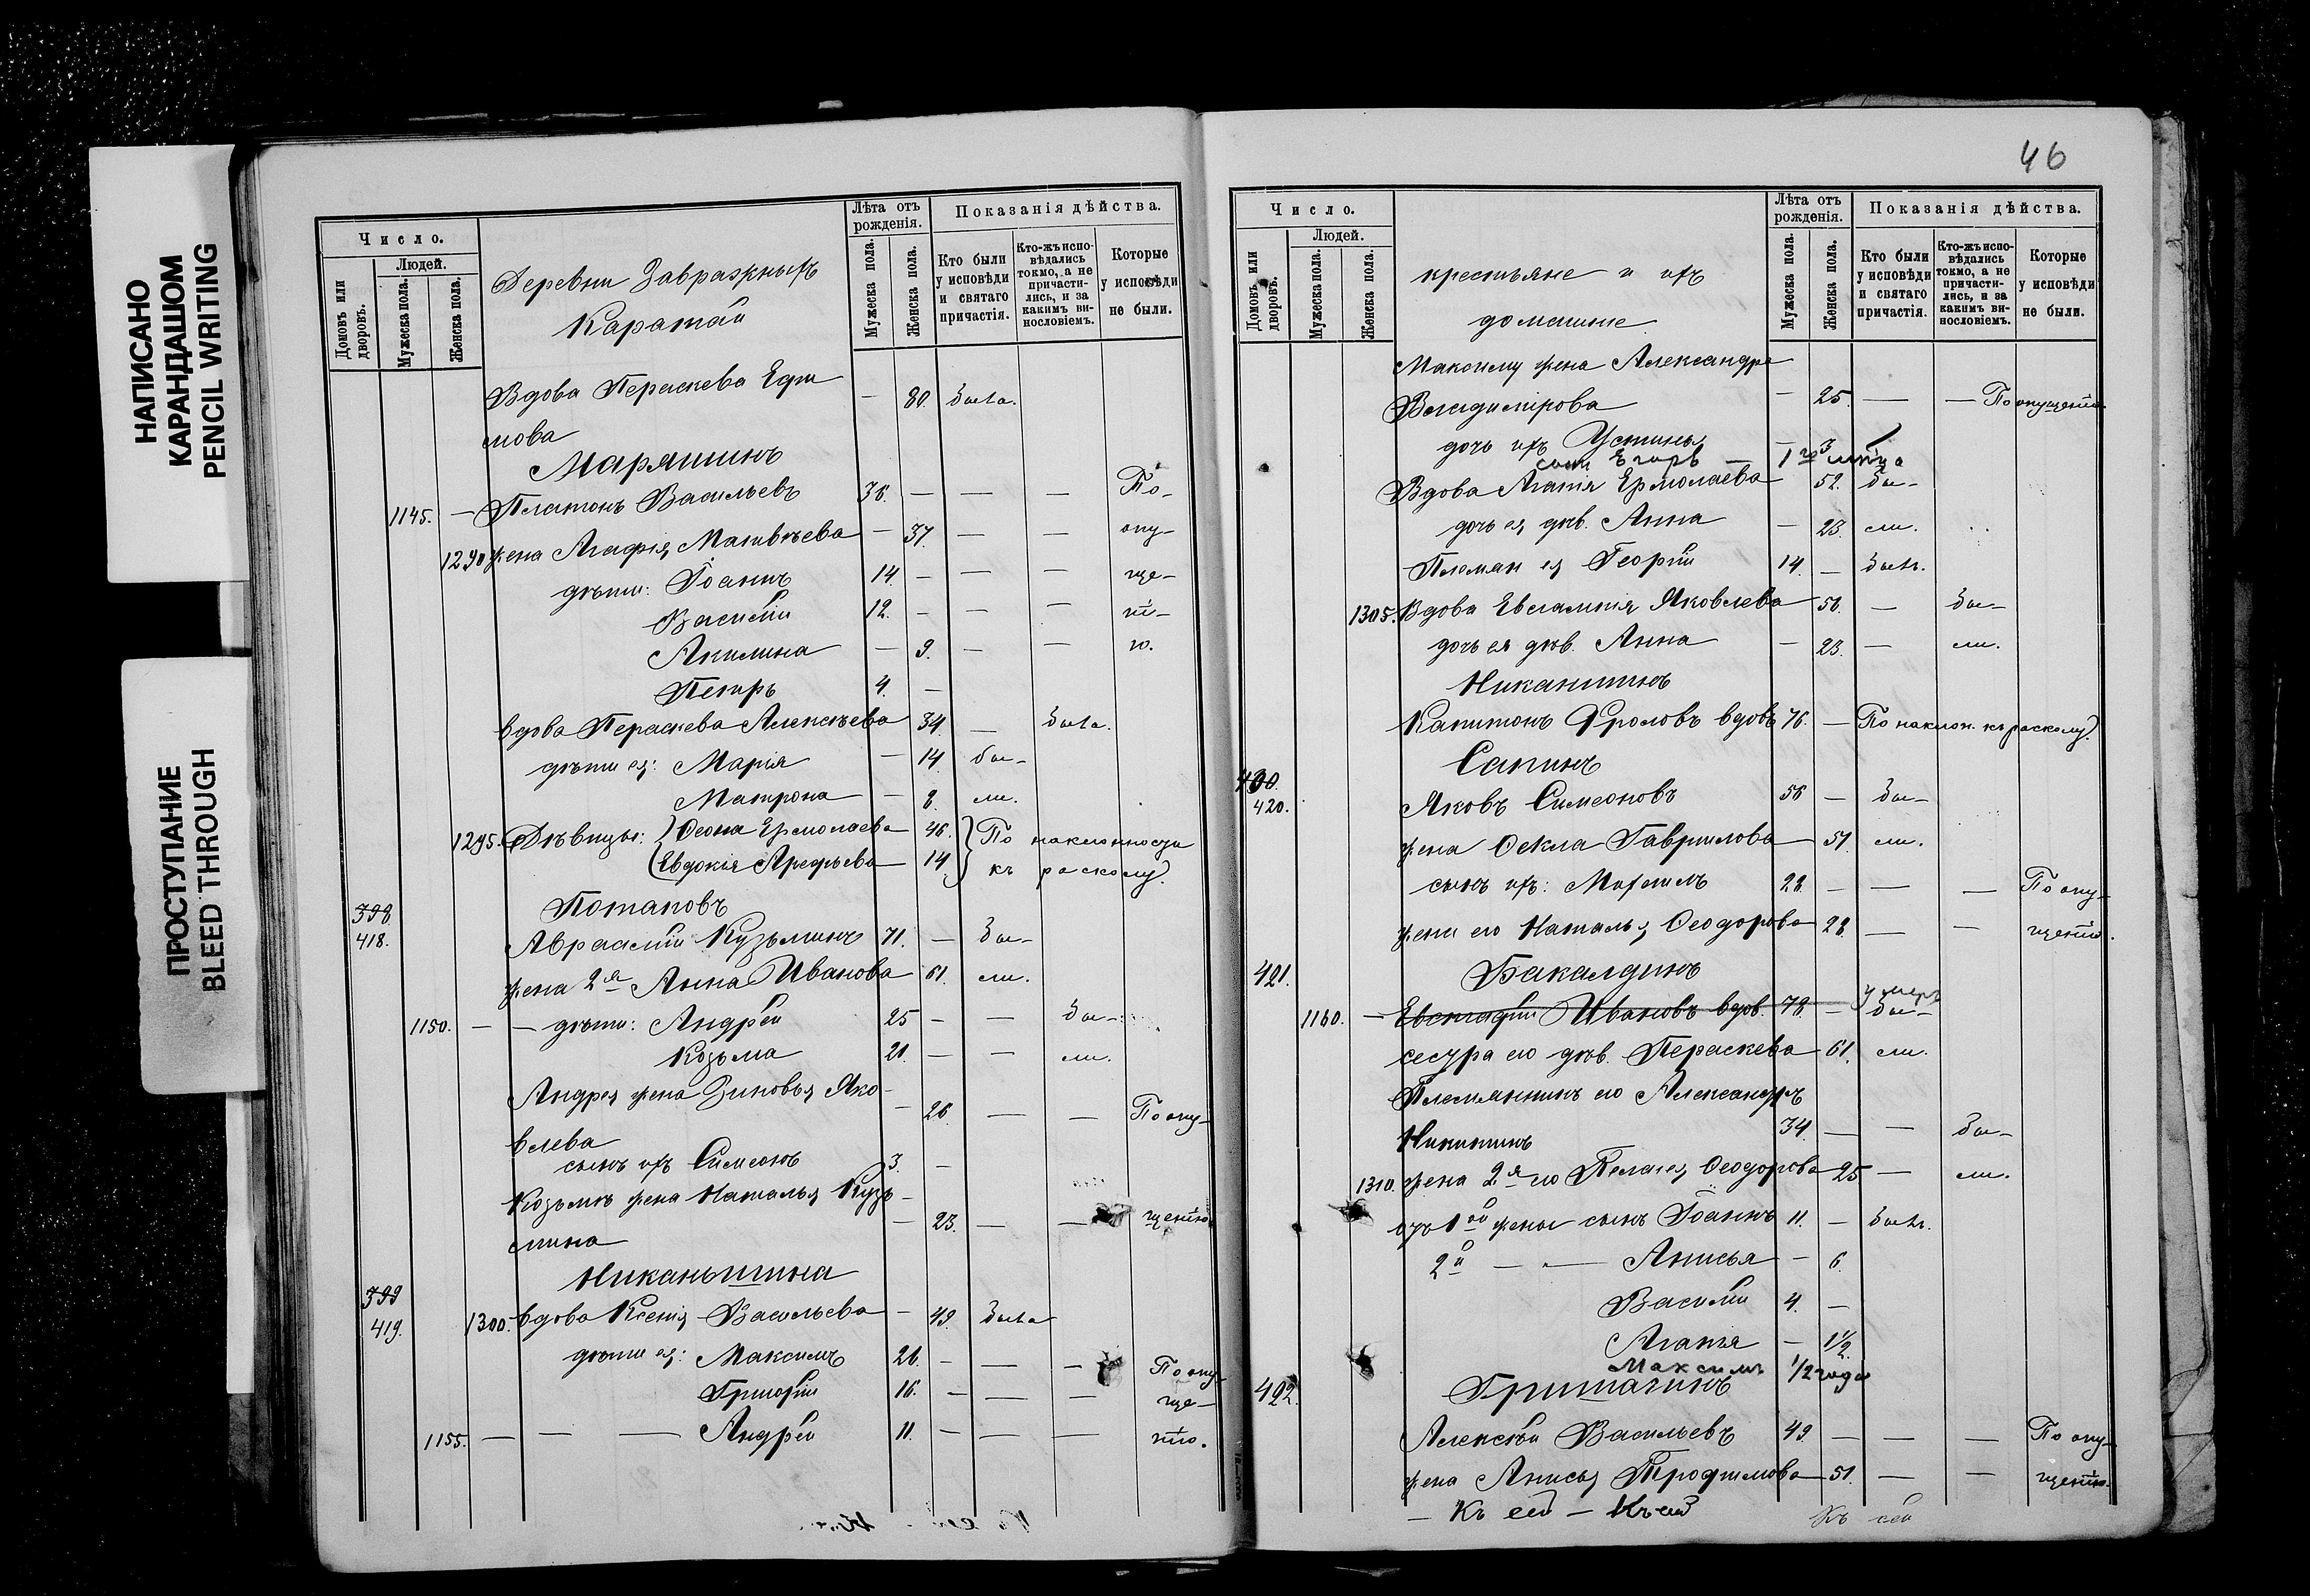 НАПИСАНО
КАРАНДАШОМ
PENCIL WRITING
ПРОСТУПАНИЕ
BLEED THROUGH
Число.
Домовъ или дворовъ.
Людей.
Мужеска пола.
Женска пола.
Деревни Завражныхъ
Каратай
Лѣта отъ рожденія.
Мужеска пола.
Женска пола.
Показанія дѣйства.
Кто были у исповѣди и святаго причастія.
Кто-жъ испо-вѣдались токмо, а не причасти-лись, и за какимъ ви-нословіемъ.
Которые у исповѣди не были.
Вдова Параскева Ефи — 80. была.
мова
Маряшинъ
1145. — Платонъ Васильевъ 36. — — — По-
1290 жена Агафія Матвѣева — 37. — — опу-
дѣти: Іоаннъ 14. — — — ще-
Василій 12. — — — ні-
Акилина — 9. — — ю.
Петръ 4. —
вдова Параскева Алексѣева 34. — была.
дѣти ея: Марія — 14. бы-
Матрона — 8. ли.
1295. Дѣвицы: Ѳеона Ермолаева 46. По наклонности
Евдокія Арефьева 14. къ расколу.
398. Потаповъ
418. Авраамій Кузьминъ 71. — бы-
жена 2я Анна Иванова 61. ли.
1150. — — дѣти: Андрей 25 — — бы-
Козьма 21. — — ли.
Андрея жена Зиновья Яко-
— 26. — — По опу-
влева
сынъ ихъ Симеонъ 3. —
Козьмы жена Наталья Кузь-
— 23. — — щенію.
мина
399 Никаньшина
419. 1300. вдова Ксенія Васильева — 49. была
дѣти ея: Максимъ 21. — — — По опу-
Григорій 16. — — — ще-
1155. — — — Андрей 11. — — — нію.
46
Число.
Домовъ или дворовъ.
Людей.
Мужеска пола.
Женска пола.
крестьяне и ихъ
домашніе
Лѣта отъ рожденія.
Мужеска пола.
Женска пола.
Показанія дѣйства.
Кто были у исповѣди и святаго причастія.
Кто-жъ испо-вѣдались токмо, а не причасти-лись, и за какимъ ви-нословіемъ.
Которые у исповѣди не были.
Максиму жена Александра
Владимірова — 25. — — По опущенію
дочь ихъ Устинья — 3
сынъ Егоръ —
Вдова Агапія Ермолаева 52. бы-
дочь ея дѣв. Анна — 23. ли.
Племян ея Георгій 14. — былъ.
1305. Вдова Евлампія Яковлева 56. — бы-
дочь ея дѣв. Анна — 23. — ли.
Никаншинъ
Капитонъ Фроловъ вдовъ 76. — По наклон. къ расколу.
400. Сапинъ
420. Яковъ Симеоновъ 56 — бы-
жена Ѳекла Гаврилова 51. ли.
сынъ ихъ: 28. — — — По опу-
жена его Наталья Ѳеодорова 28. — — щенію.
421. Бакалдинъ
умеръ
1160. — Евстафій Ивановъ вдов. 78. — бы-
сестра его дѣв. Параскева 61. ли.
Племянникъ его Александръ
Никитинъ 34. — — бы-
1310. жена 2я его Пелагея Ѳеодорова 25 — ли.
отъ 1ой жены сынъ Іоаннъ 11. — былъ.
2й — " — Анисья — 6.
Василій 4. —
Агапія — 1½.
Максимъ 1/2 года
422. Гришагинъ
Алексѣй Васильевъ 49 — — — По опу-
жена Анисья Трофимова 51. — — щенію.
— Къ сей — Къ сей
Къ сей